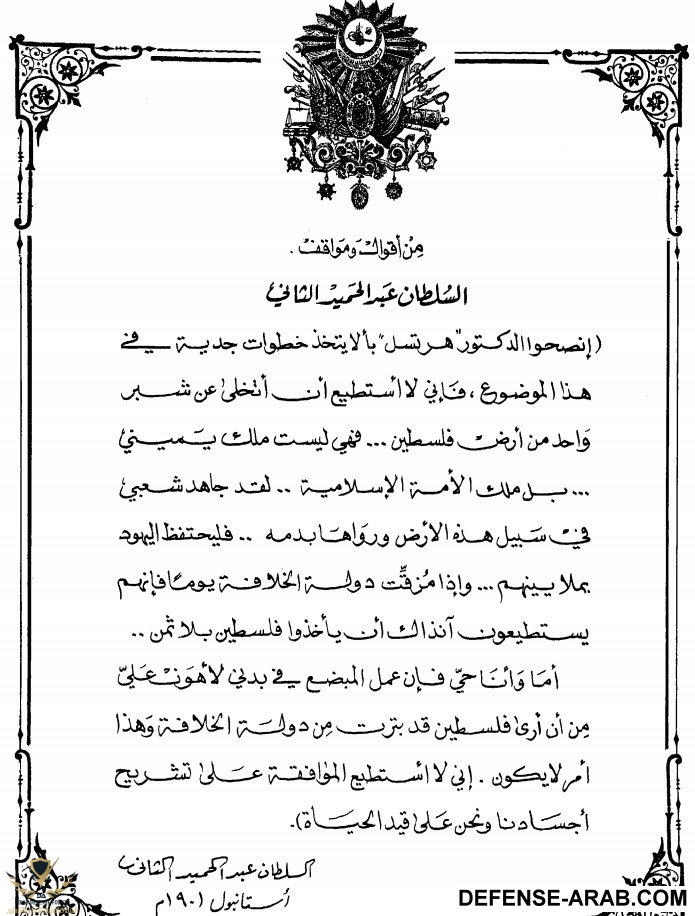 من أقوال ومواقف .
السلطان عبد الحميد الثاني
(إنصحوا الدكتور "هرتسل" بألا يتخذ خطوات جدية في
هذا الموضوع ، فإني لا أستطيع أن أتخلى عن شبر
واحد من أرض فلسطين ... فهي ليست ملك يميني
... بل ملك الأمة الإسلامية .. لقد جاهد شعبي
في سبيل هذه الأرض ورواها بدمه .. فليحتفظ اليهود
بملايينهم ... وإذا مُزقت دولة الخلافة يومًا فإنهم
يستطيعون آنذاك أن يأخذوا فلسطين بلا ثمن ..
أما وَأنا حيّ فإن عمل المبضع في بدني لأهون عليّ
من أن أرى فلسطين قد بترت من دولة الخلافة وَهذا
أمر لا يكون . إني لا أستطيع الموافقة على تشريح
أجسادنا ونحن على قيد الحياة).
السلطان عبد الحميد الثاني
أستانبول ١٩٠١م
DEFENSE-ARAB.COM